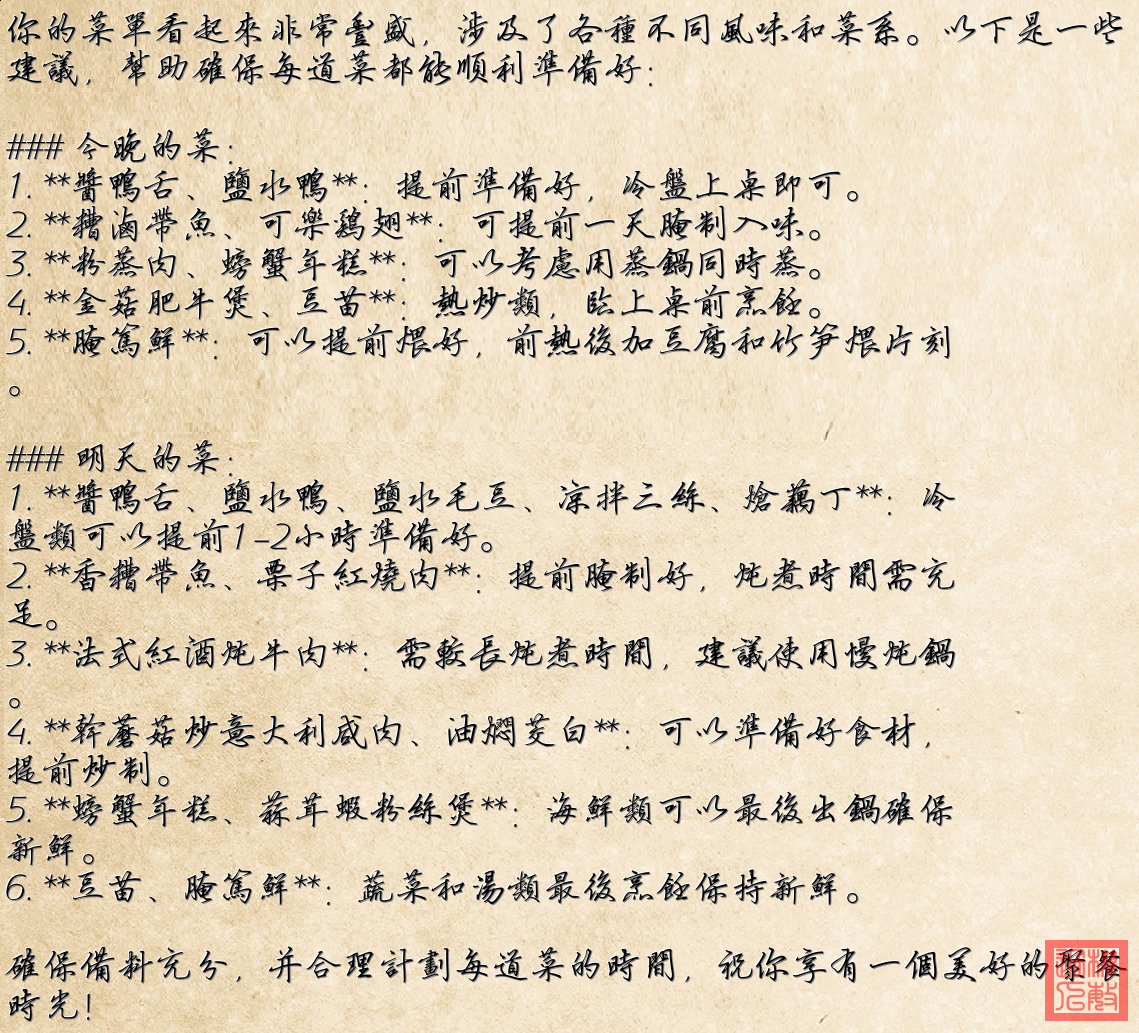 你的菜單看起來非常豐盛，涉及了各種不同風味和菜系。以下是一些
建議，幫助確保每道菜都能順利準備好：
### 今晚的菜：
1. **醬鴨舌、鹽水鴨**：提前準備好，冷盤上桌即可。
2. **糟滷帶魚、可樂鷄翅**：可提前一天腌制入味。
3. **粉蒸肉、螃蟹年糕**：可以考慮用蒸鍋同時蒸。
4. **金菇肥牛煲、豆苗**：熱炒類，臨上桌前烹飪。
5. **腌篤鮮**：可以提前煨好，前熱後加豆腐和竹笋煨片刻
。
### 明天的菜：
1. **醬鴨舌、鹽水鴨、鹽水毛豆、凉拌三絲、熗藕丁**：冷
盤類可以提前1-2小時準備好。
2. **香糟帶魚、栗子紅燒肉**：提前腌制好，炖煮時間需充
足。
3. **法式紅酒炖牛肉**：需較長炖煮時間，建議使用慢炖鍋
。
4. **幹蘑菇炒意大利咸肉、油燜茭白**：可以準備好食材，
提前炒制。
5. **螃蟹年糕、蒜茸蝦粉絲煲**：海鮮類可以最後出鍋確保
新鮮。
6. **豆苗、腌篤鮮**：蔬菜和湯類最後烹飪保持新鮮。
確保備料充分，并合理計劃每道菜的時間，祝你享有一個美好的聚餐
時光！